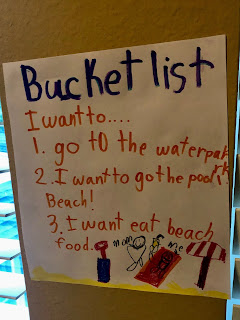 Bucket list
I want to....
1. go to the waterpark
2. I want to go the pool!
Beach!
3. I want eat beach
food.
mom
me